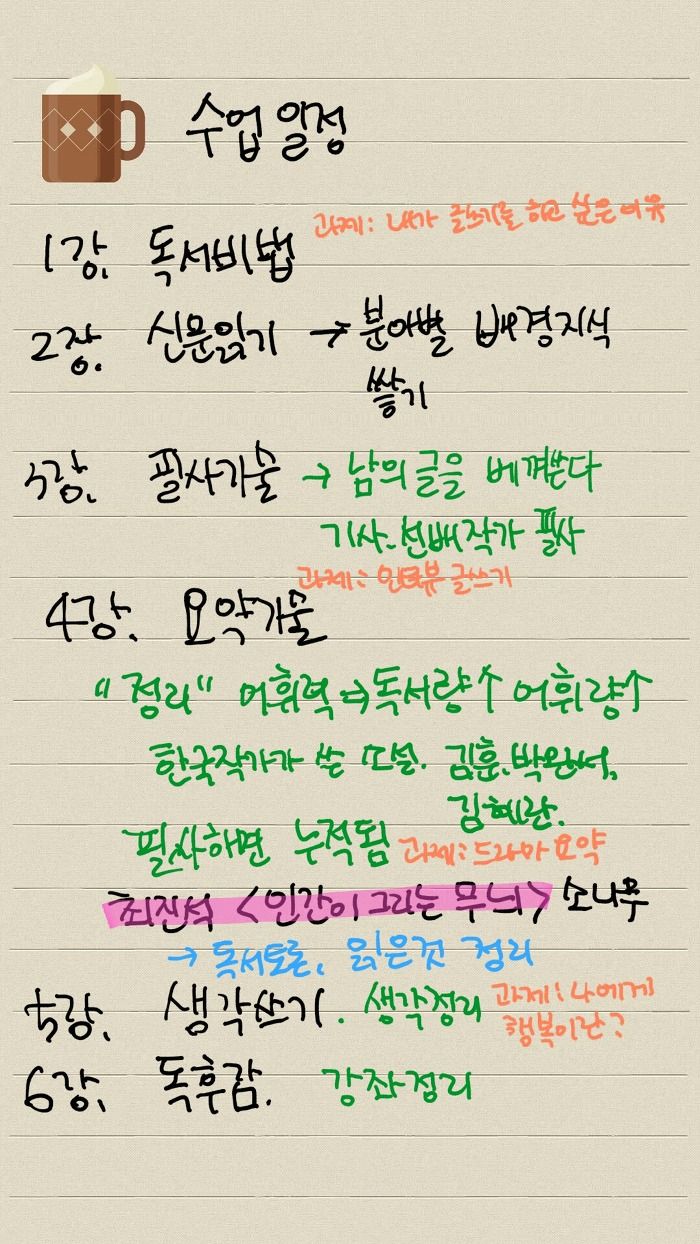 수업 일정
과제: 내가 글쓰기를 하고 싶은 이유
1강. 독서비법
2강. 신문읽기 → 분야별 배경지식
쌓기
3강. 필사기술 → 남의 글을 베껴쓴다
기사. 선배작가 필사
과제: 인터뷰 글쓰기
4강. 요약기술
"정리" 어휘력 ⇒ 독서량↑ 어휘량↑
한국작가가 쓴 소설. 김훈. 박완서,
김혜란.
필사하면 누적됨 과제: 드라마 요약
최진석 <인간이 그리는 무늬> 소나무
→ 독서토론, 읽은것 정리
5강. 생각쓰기. 생각정리 과제: 나에게
행복이란?
6강. 독후감. 강좌정리